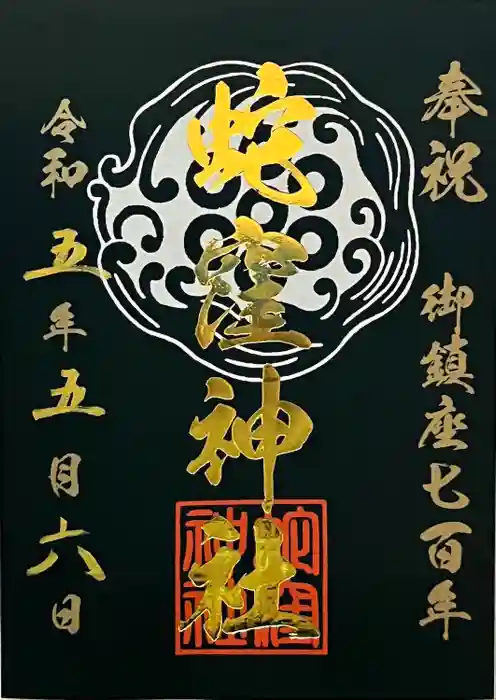 奉祝 御鎮座七百年
蛇窪神社
蛇窪神社
令和五年五月六日